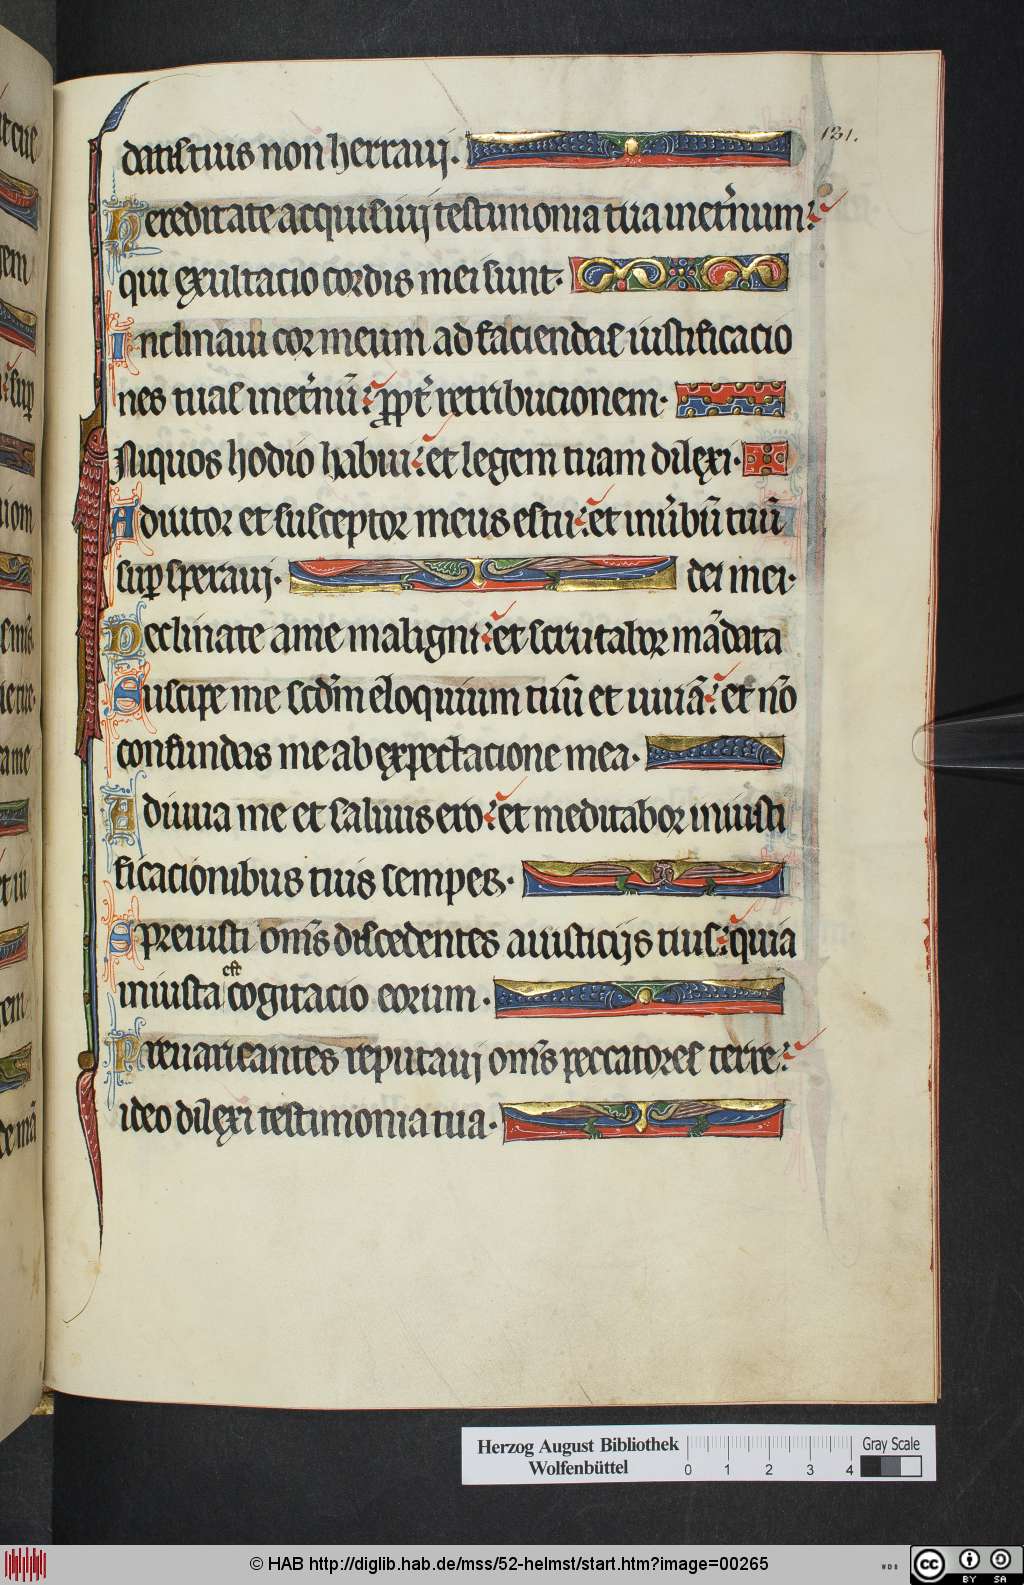 131.
datis tuis non herraui.
Hereditate acquisiuj testimonia tua inet̄num:
qui exultacio cordis mei sunt.
Inclinaui cor meum ad faciendas iustificacio
nes tuas inet̄nū: ꝓpt̄ retribucionem.
Niquos hodio habui: et legem tuam dilexi.
Adiutor et susceptor meus es tu: et inu̾bū tuū
suꝑ speraui.
dei mei.
Declinate a me maligni: et scrutabor mādata
Suscipe me scdm̄ eloquium tuū et uiuā: et nō
confundas me ab expectacione mea.
Adiuua me et saluus ero: et meditabor in iusti
ficacionibus tuis semper.
Spreuisti om̄s discedentes a iusticijs tuis: quia
iniusta est cogitacio eorum.
Preuaricantes reputauj om̄s peccatores terre:
ideo dilexi testimonia tua.
Herzog August Bibliothek
Wolfenbüttel
0 1 2 3 4
Gray Scale
© HAB http://diglib.hab.de/mss/52-helmst/start.htm?image=00265
cc BY SA